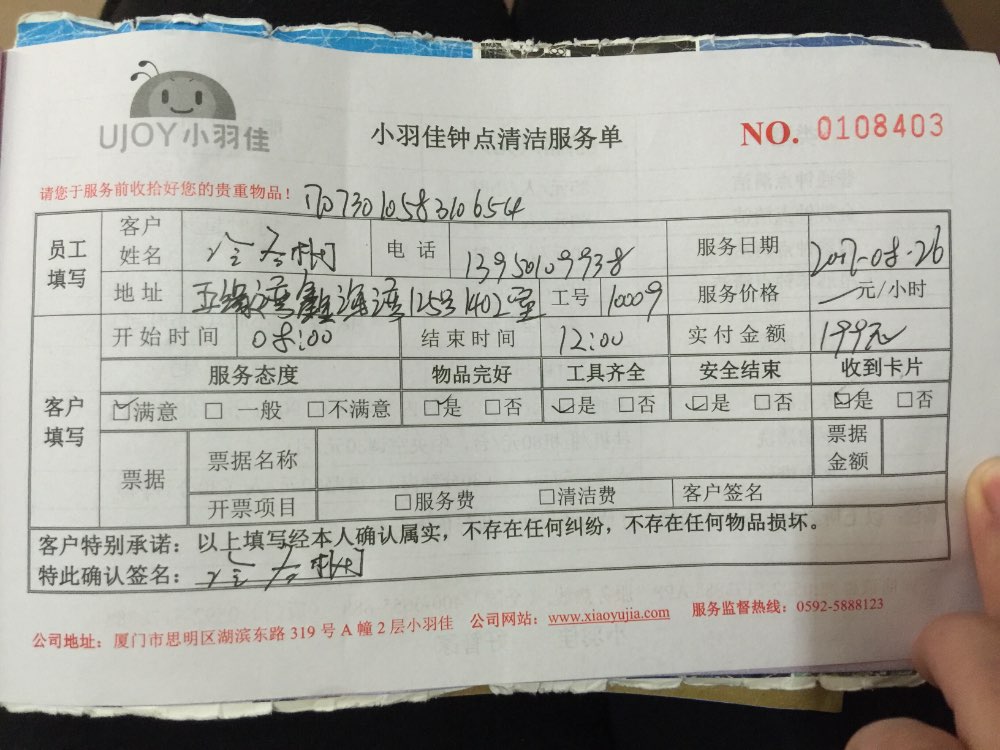 UJOY小羽佳
小羽佳钟点清洁服务单
NO. 0108403
请您于服务前收拾好您的贵重物品！
7301058310654
员工填写 客户姓名 电话 13950109938 服务日期 2017-08-26
地址 五缘湾鑫海湾125号1402室 工号 10009 服务价格 元/小时
客户填写 开始时间 08:00 结束时间 12:00 实付金额 199元
服务态度 物品完好 工具齐全 安全结束 收到卡片
☑满意 □一般 □不满意 ☑是 □否 ☑是 □否 ☑是 □否 ☑是 □否
票据 票据名称 票据金额
开票项目 □服务费 □清洁费 客户签名
客户特别承诺：以上填写经本人确认属实，不存在任何纠纷，不存在任何物品损坏。
特此确认签名：
公司地址：厦门市思明区湖滨东路 319 号 A 幢 2 层小羽佳 公司网站：www.xiaoyujia.com 服务监督热线：0592-5888123